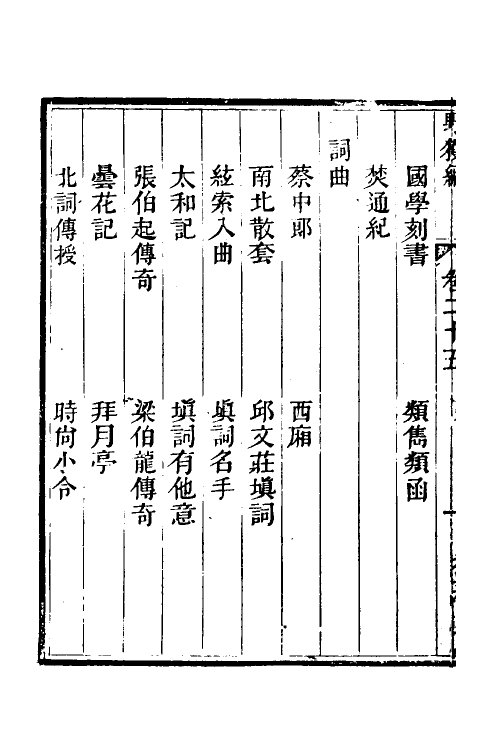 國學刻書　類雋類函
焚通紀
詞曲
蔡中郎　西廂
南北散套　邱文莊塡詞
絃索入曲　塡詞名手
太和記　塡詞有他意
張伯起傳奇　梁伯龍傳奇
曇花記　拜月亭
北詞傳授　時尙小令
卷二十五